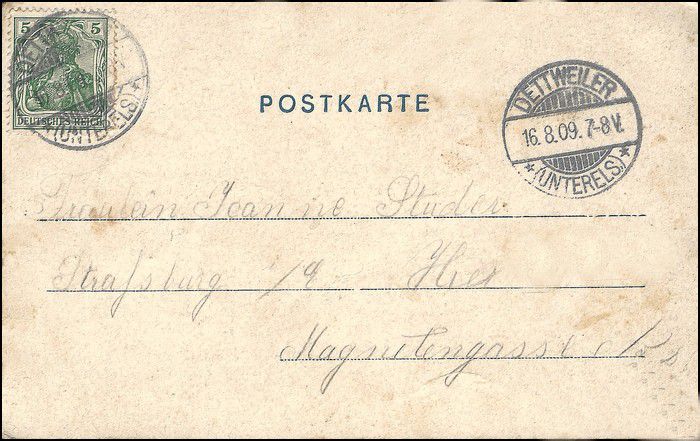 5 5
DEUTSCHES REICH
(UNTERELS.)
POSTKARTE
DETTWEILER
16.8.09. 7-8V.
*(UNTERELS.)*
Fräulein Jeanne Studer
Strassburg i/E
Magnetengasse